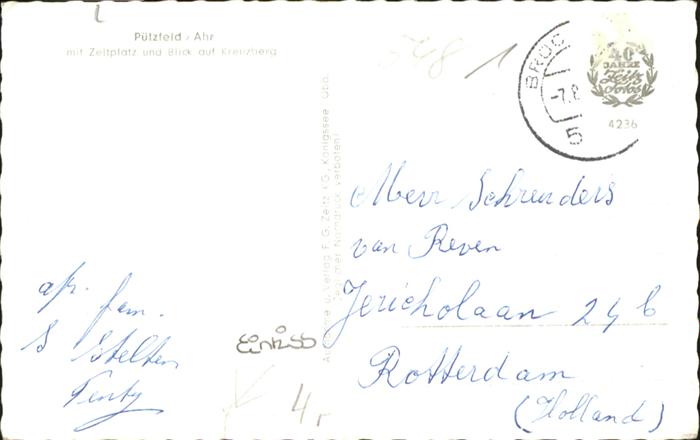 Pützfeld / Ahr
mit Zeltplatz und Blick auf Kreuzberg
548 1
BRÜC
-7.8
5
40
JAHRE
Zeitz
Fotos
4236
Aufnahme u. Verlag F. G. Zeitz KG., Königssee Obb.
(Jeglicher Nachdruck verboten)
Merr Schreuders
van Reven
Jericholaan 24 b
Rotterdam
(Holland)
afz. fam.
S Stelten
Tenty
4